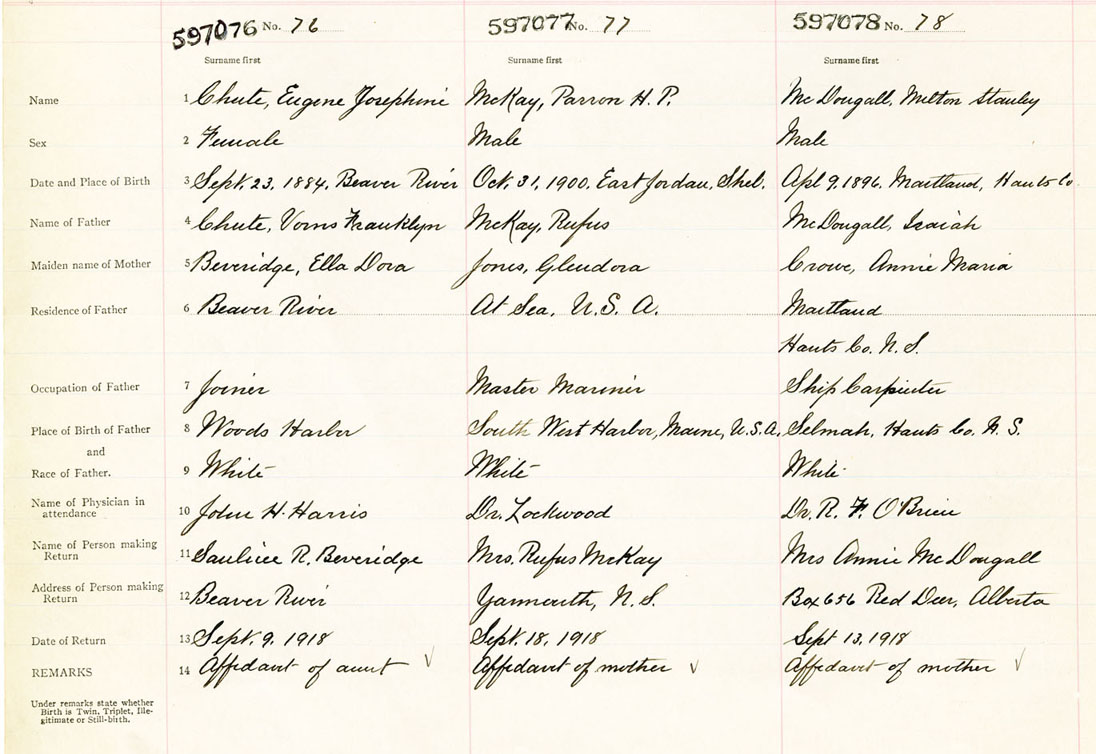 597076 No. 76 597077 No. 77 597078 No. 78
Surname first Surname first Surname first
Name 1 Chute, Eugene Josephine McKay, Parron H. P. McDougall, Milton Stanley
Sex 2 Female Male Male
Date and Place of Birth 3 Sept. 23, 1884, Beaver River Oct. 31, 1900, East Jordan, Shel. Apl 9, 1896, Maitland, Hants Co.
Name of Father 4 Chute, Franklyn McKay, Rufus McDougall, Isaiah
Maiden name of Mother 5 Beveridge, Ella Dora Jones, Glendora Crowe, Annie Maria
Residence of Father 6 Beaver River At Sea, U. S. A. Maitland
Hants Co. N. S.
Occupation of Father 7 Joiner Master Mariner Ship Carpenter
Place of Birth of Father 8 Woods Harbor South West Harbor, Maine, U.S.A. Selmah, Hants Co. N. S.
and
Race of Father. 9 White White White
Name of Physician in
attendance 10 John H. Harris Dr. Lockwood Dr. R. F. O'Brien
Name of Person making
Return 11 R. Beveridge Mrs. Rufus McKay Mrs Annie McDougall
Address of Person making
Return 12 Beaver River Yarmouth, N. S. Box 656 Red Deer, Alberta
Date of Return 13 Sept. 9, 1918 Sept. 18, 1918 Sept 13, 1918
REMARKS 14 Affidavit of aunt ✓ Affidavit of mother ✓ Affidavit of mother ✓
Under remarks state whether
Birth is Twin, Triplet, Ille-
gitimate or Still-birth.